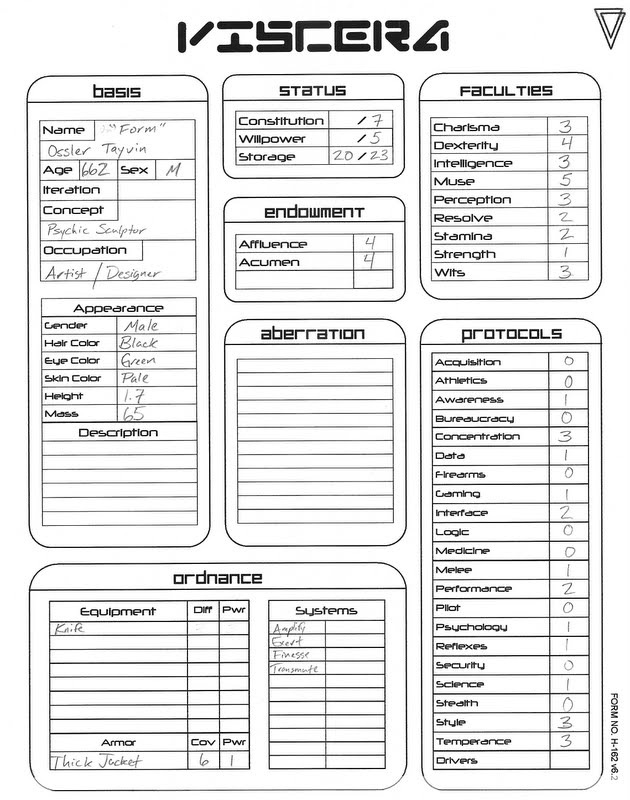 VISCERA
BASIS
Name "Form"
Ossler Tayvin
Age 662 Sex M
Iteration
Concept
Psychic Sculptor
Occupation
Artist / Designer
Appearance
Gender Male
Hair Color Black
Eye Color Green
Skin Color Pale
Height 1.7
Mass 65
Description
STATUS
Constitution / 7
Willpower / 5
Storage 20 / 23
ENDOWMENT
Affluence 4
Acumen 4
ABERRATION
FACULTIES
Charisma 3
Dexterity 4
Intelligence 3
Muse 5
Perception 3
Resolve 2
Stamina 2
Strength 1
Wits 3
PROTOCOLS
Acquisition 0
Athletics 0
Awareness 1
Bureaucracy 0
Concentration 3
Data 1
Firearms 0
Gaming 1
Interface 2
Logic 0
Medicine 0
Melee 1
Performance 2
Pilot 0
Psychology 1
Reflexes 1
Security 0
Science 1
Stealth 0
Style 3
Temperance 3
Drivers
ORDNANCE
Equipment Diff Pwr
Knife
Armor Cov Pwr
Thick Jacket 6 1
Systems
Amplify
Exert
Finesse
Transmute
FORM NO. H-162 v6.2